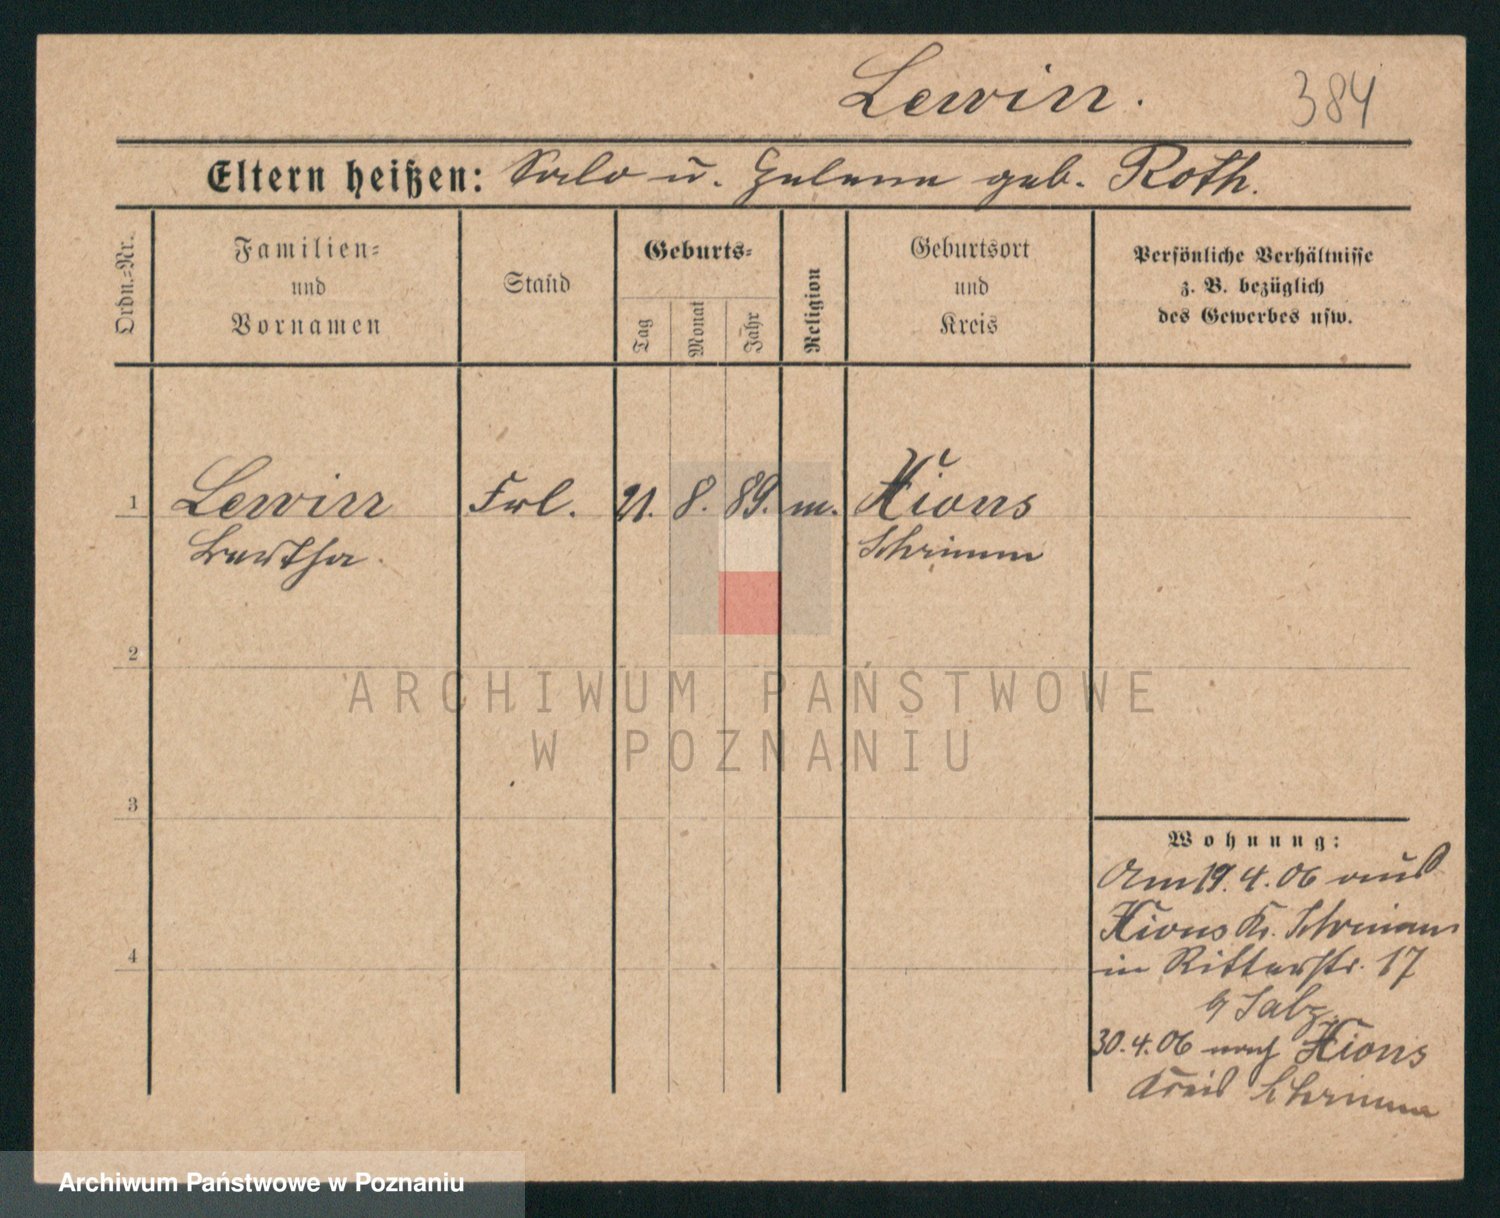 Lewin.
384
Eltern heißen: Salo u. Helene geb. Roth.
Ordn.-Nr.
Familien-
und
Vornamen
Stand
Geburts-
Tag
Monat
Jahr
Religion
Geburtsort
und
Kreis
Persönliche Verhältnisse
z. B. bezüglich
des Gewerbes usw.
1 Lewin Frl. 21. 8. 89. m. Xions
Bertha. Schrimm
2
3
4
Wohnung:
Am 19.4.06 aus
Xions Kr. Schrimm
in Ritterstr. 17
b/
30.4.06 nach Xions
Kreis Schrimm
ARCHIWUM PAŃSTWOWE
W POZNANIU
Archiwum Państwowe w Poznaniu